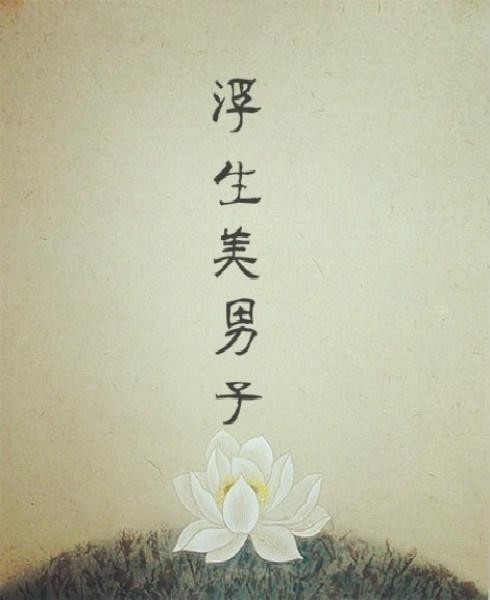 浮生美男子